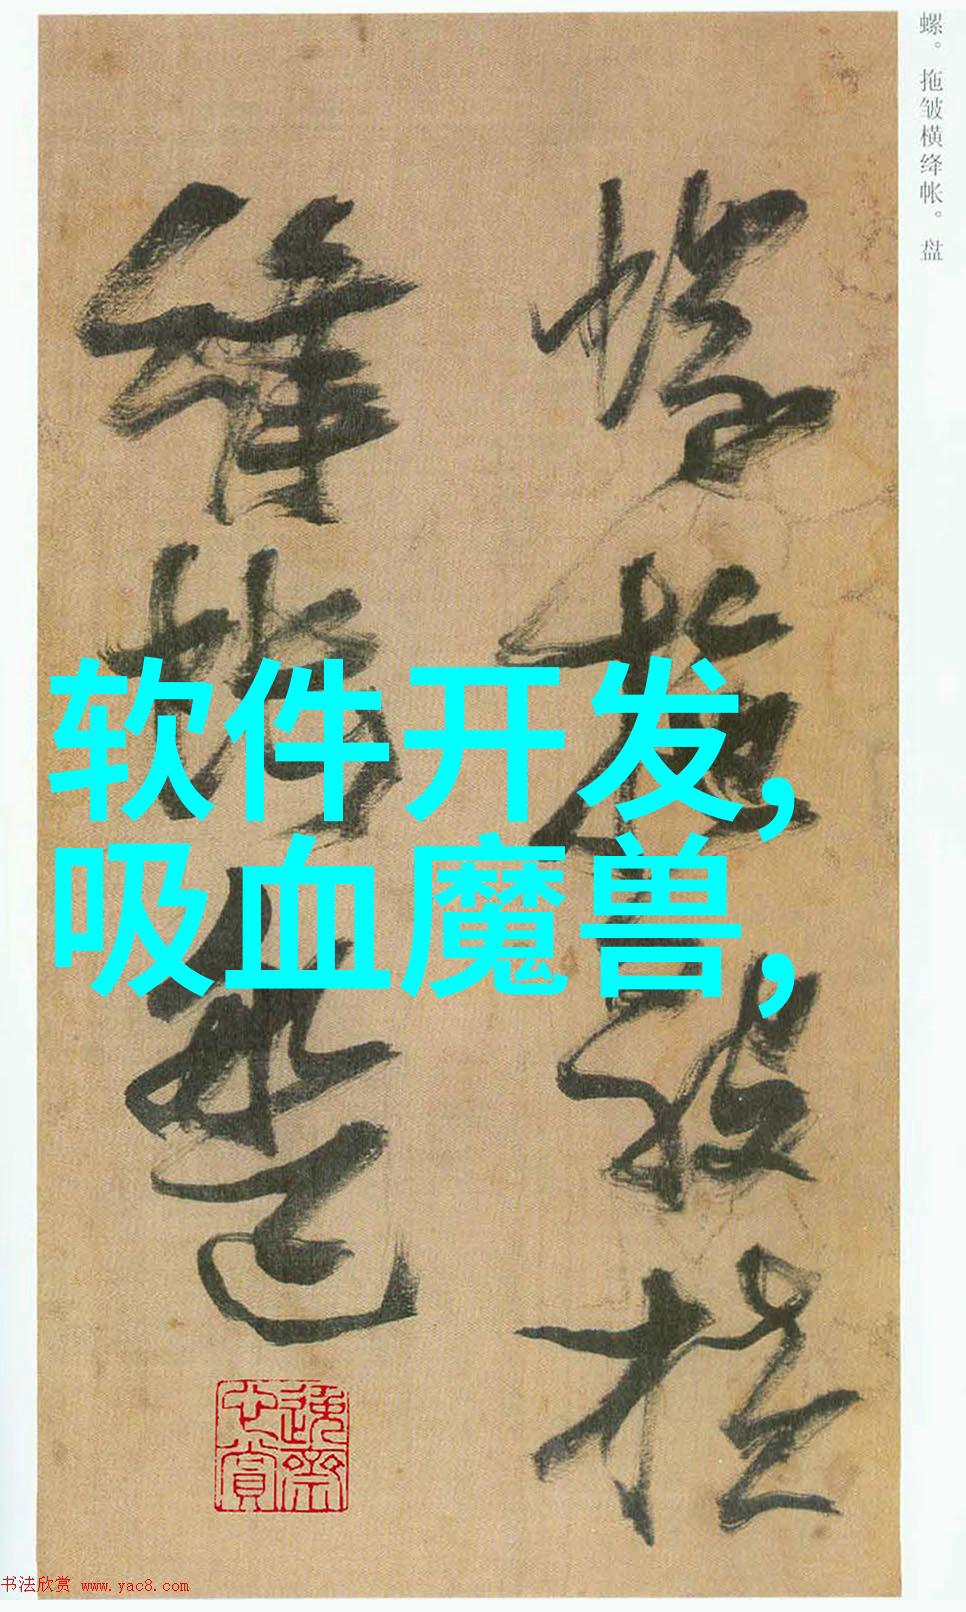 螺。拖皱横绛帐。盘
螺拖皺橫
絳帳盤
软件开发,
吸血魔兽,
书法欣赏 www.yac8.com